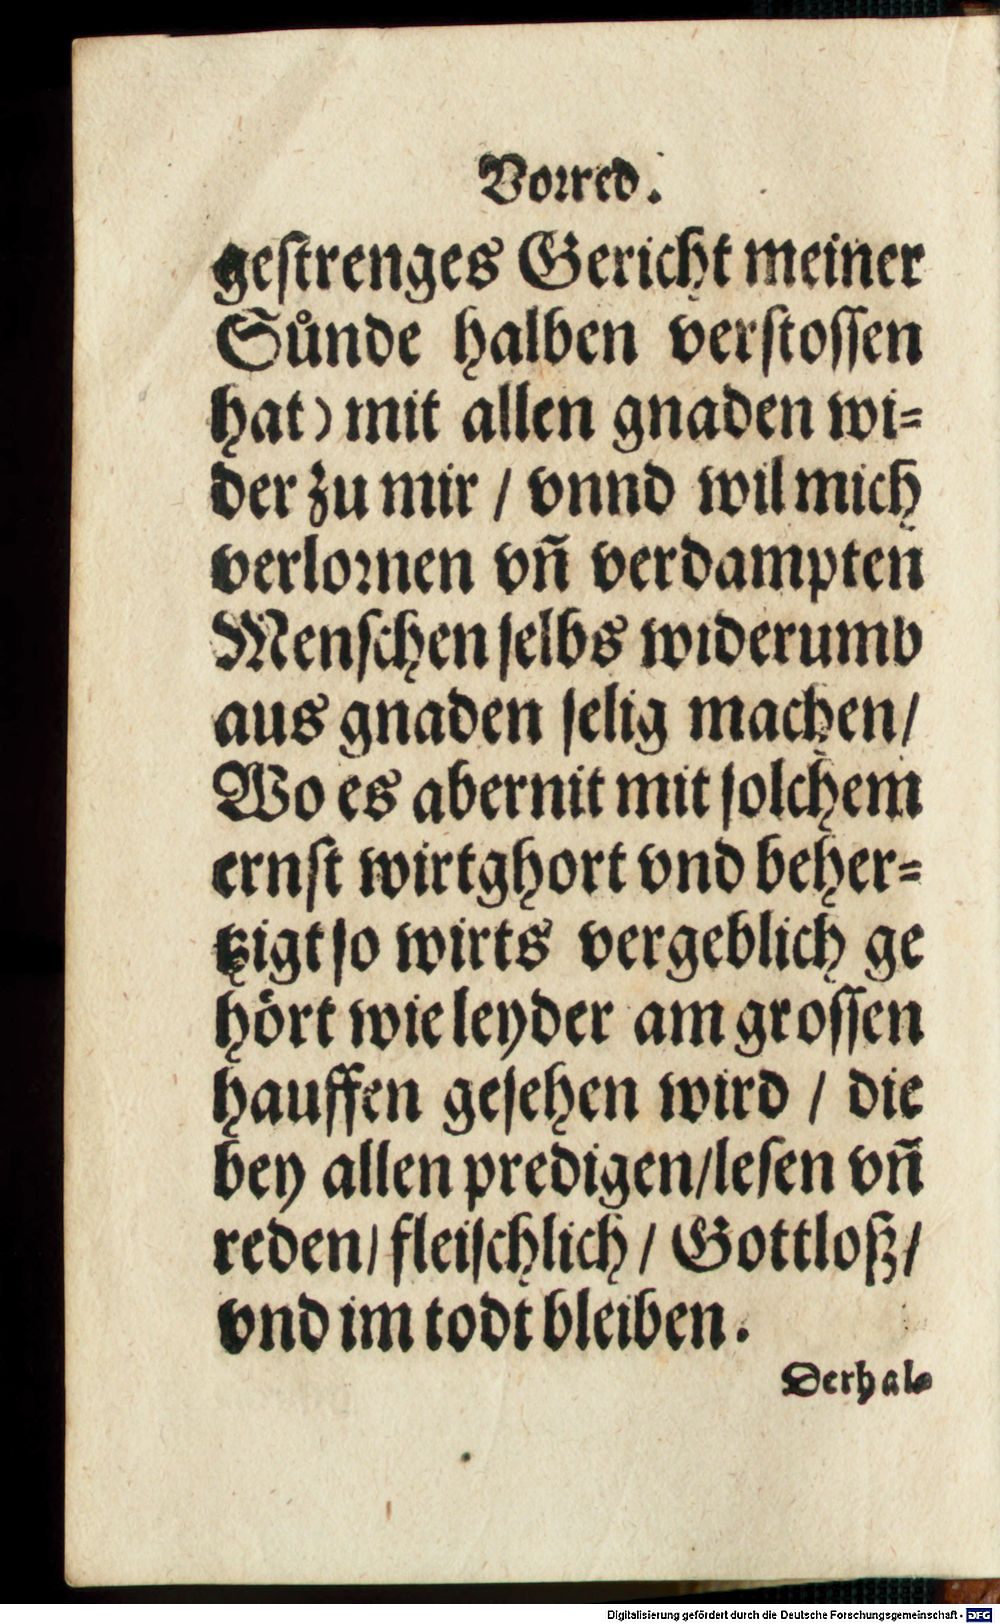 Vorred.
gestrenges Gericht meiner
Sůnde halben verstossen
hat) mit allen gnaden wi=
der zu mir / vnnd wil mich
verlornen vñ verdampten
Menschen selbs widerumb
aus gnaden selig machen/
Wo es aber nit mit solchem
ernst wirt ghort vnd beher=
tzigt so wirts vergeblich ge
hört wie leyder am grossen
hauffen gesehen wird / die
bey allen predigen/lesen vñ
reden/ fleischlich / Gottloß/
vnd im todt bleiben.
Derhal=
Digitalisierung gefördert durch die Deutsche Forschungsgemeinschaft - DFG